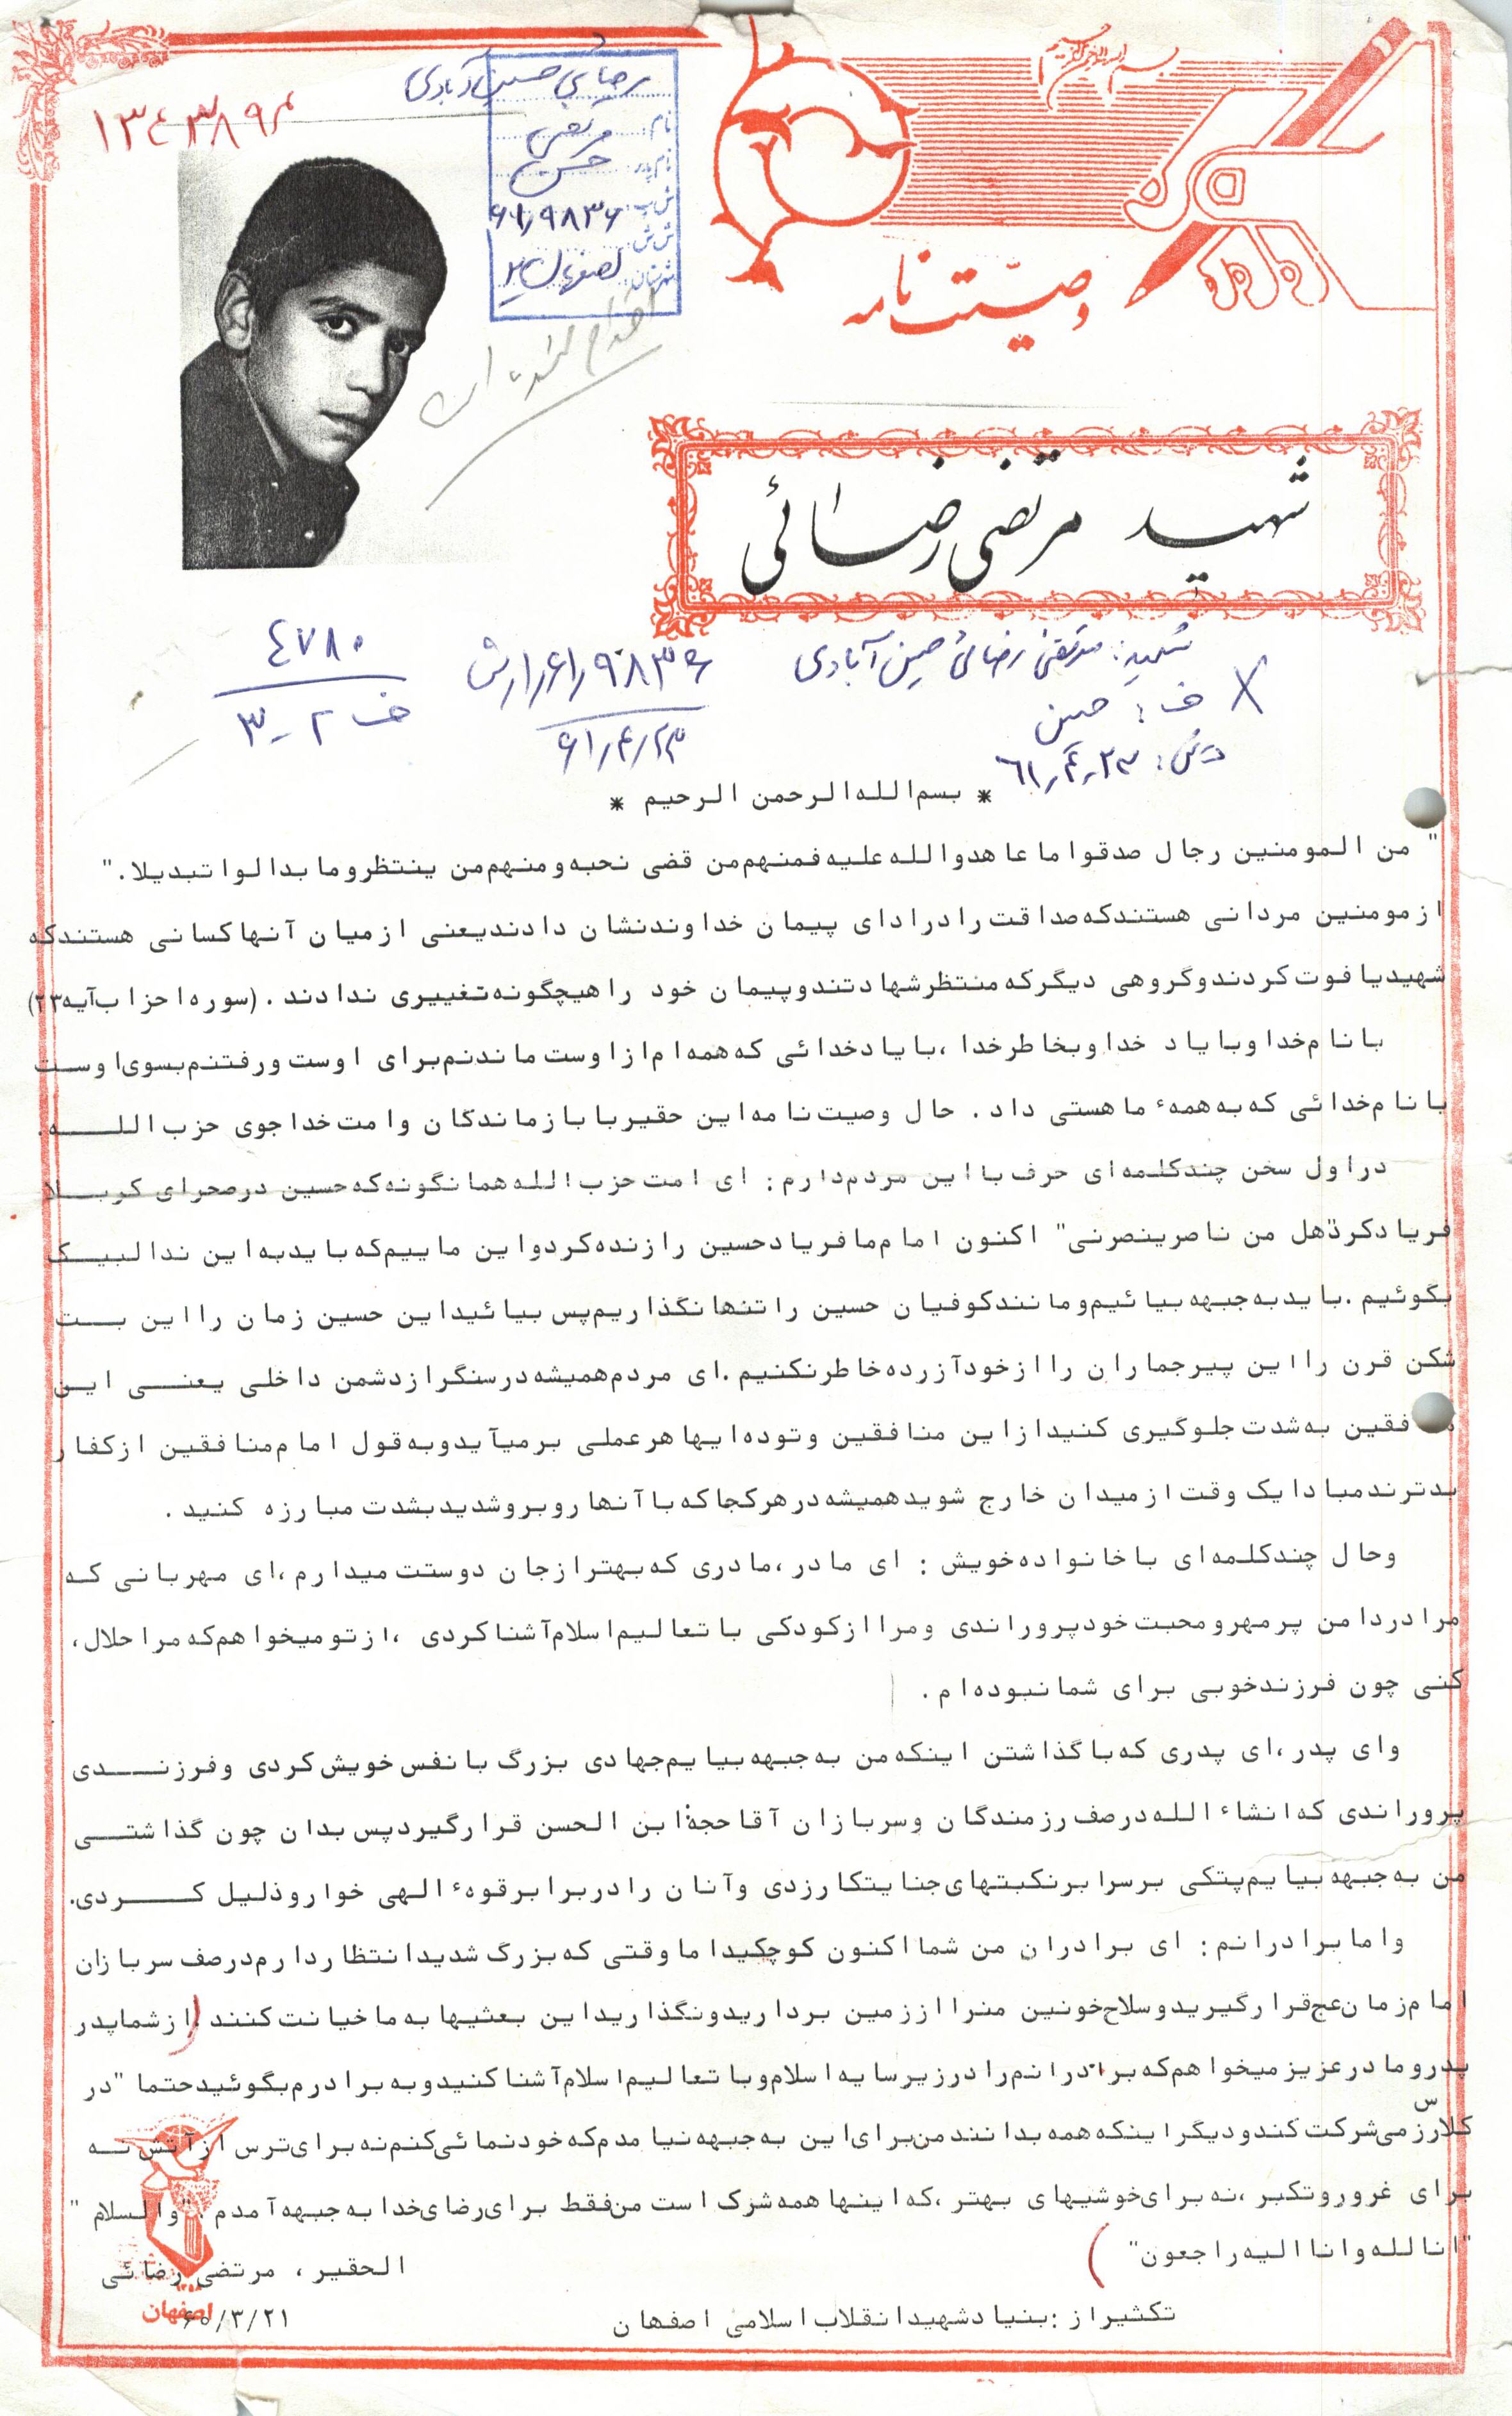 بسم الله الرحمن الرحیم
وصیّت نامه
رضایی حسین آبادی
نام: مرتضی
نام پدر: حسن
ش پ: ۶۱۱۹۸۳۶
ش ش:
شهرستان: اصفهان ۲
۱۳۴۳۸۹۴
اقدام شده است
شهید مرتضی رضائی
شهید: مرتضی رضائی حسین آبادی
ف: حسین
۶۱٫۴٫۲۳
۶۱٫۴٫۲۳
۴۷۸۰
ف ۲ - ۳
* بسم الله الرحمن الرحیم *
" من المومنین رجال صدقوا ما عاهدوا لله علیه فمنهم من قضی نحبه و منهم من ینتظر و ما بدالوا تبدیلا . "
از مومنین مردانی هستند که صداقت را در ادای پیمان خداوند نشان دادند یعنی از میان آنها کسانی هستند که
شهید یا فوت کردند و گروهی دیگر که منتظر شهادتند و پیمان خود را هیچگونه تغییری ندادند . (سوره احزاب آیه ۲۳)
با نام خدا و با یاد خدا و بخاطر خدا ، با یاد خدائی که همه ام از اوست ماندنم برای اوست و رفتنم بسوی اوست
با نام خدائی که به همهٔ ما هستی داد . حال وصیت نامه این حقیر با بازماندگان و امت خداجوی حزب الله .
در اول سخن چند کلمه ای حرف با این مردم دارم : ای امت حزب الله همانگونه که حسین در صحرای کربلا
فریاد کرد "هل من ناصر ینصرنی" اکنون امام ما فریاد حسین را زنده کرد و این ماییم که باید به این ندا لبیک
بگوئیم . باید به جبهه بیائیم و مانند کوفیان حسین را تنها نگذاریم پس بیائید این حسین زمان را این بت
شکن قرن را این پیر جماران را از خود آزرده خاطر نکنیم . ای مردم همیشه در سنگر از دشمن داخلی یعنی این
منافقین به شدت جلوگیری کنید از این منافقین و توده ایها هر عملی بر میآید و به قول امام منافقین از کفار
بدترند مبادا یک وقت از میدان خارج شوید همیشه در هر کجا که با آنها روبرو شدید بشدت مبارزه کنید .
و حال چند کلمه ای با خانواده خویش : ای مادر ، مادری که بهتر از جان دوستت میدارم ، ای مهربانی که
مرا در دامن پر مهر و محبت خود پروراندی و مرا از کودکی با تعالیم اسلام آشنا کردی ، از تو میخواهم که مرا حلال ،
کنی چون فرزند خوبی برای شما نبوده ام .
و ای پدر ، ای پدری که با گذاشتن اینکه من به جبهه بیایم جهادی بزرگ با نفس خویش کردی و فرزندی
پروراندی که انشاء الله در صف رزمندگان و سربازان آقا حجة ابن الحسن قرار گیرد پس بدان چون گذاشتی
من به جبهه بیایم پتکی بر سر ابرنکبتهای جنایتکار زدی و آنان را در برابر قوهٔ الهی خوار و ذلیل کردی.
و اما برادرانم : ای برادران من شما اکنون کوچکید اما وقتی که بزرگ شدید انتظار دارم در صف سربازان
امام زمان عج قرار گیرید و سلاح خونین منرا از زمین بردارید و نگذارید این بعثیها به ما خیانت کنند . از شما پدر
پدر و مادر عزیز میخواهم که برادرانم را در زیر سایه اسلام و با تعالیم اسلام آشنا کنید و به برادرم بگوئید حتما "در
کلاس رزمی شرکت کند و دیگر اینکه همه بدانند من برای این به جبهه نیامدم که خودنمائی کنم نه برای ترس از آتش نه
برای غرور و تکبر ، نه برای خوشیهای بهتر ، که اینها همه شرک است من فقط برای رضای خدا به جبهه آمدم . "والسلام "
"انا لله و انا الیه راجعون"
الحقیر ، مرتضی رضائی
۶۰/۳/۲۱
اصفهان
تکثیر از : بنیاد شهید انقلاب اسلامی اصفهان